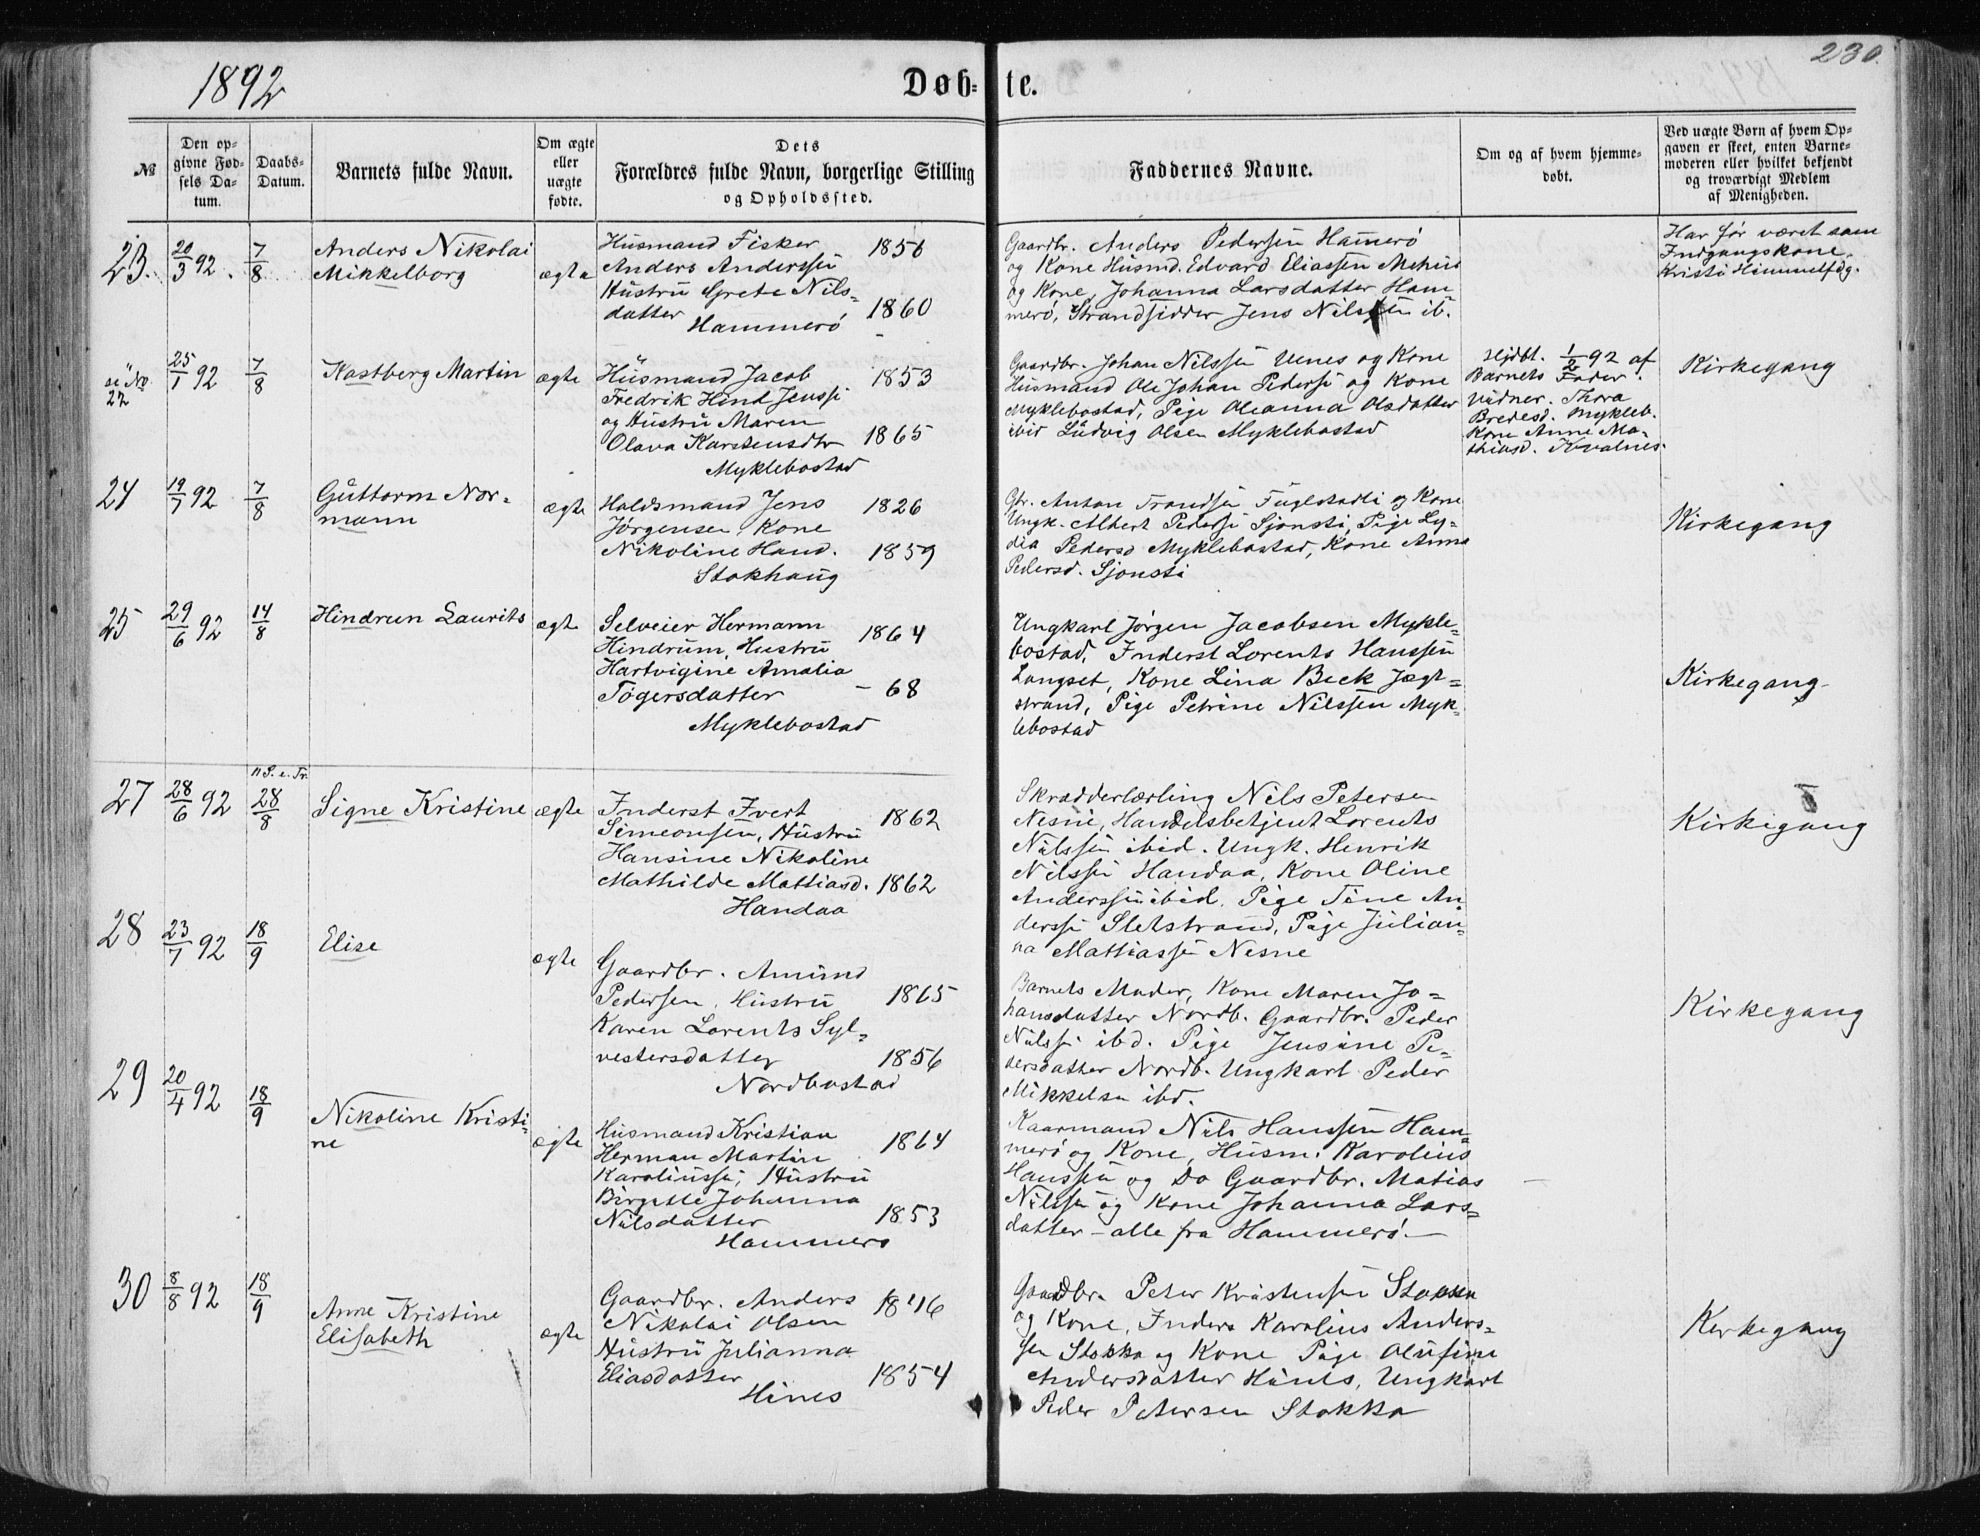 1892
Døb-
te.
230.
№
Den op-
givne Fød-
sels Da-
tum.
Daabs-
Datum.
Barnets fulde Navn.
Om ægte
eller
uægte
fødte.
Dets
Forældres fulde Navn, borgerlige Stilling
og Opholdssted.
Faddernes Navne.
Om og af hvem hjemme-
døbt.
Ved uægte Børn af hvem Op-
gaven er skeet, enten Barne-
moderen eller hvilket bekjendt
og troværdigt Medlem
af Menigheden.
23. 20/3 92. 7/8
Anders Nikolai
Mikkelborg
ægte
Husmand Fisker 1856
Anders Anderssen
Hustru Grete Nils-
datter 1860
Hammerö
Gaardbr. Anders Pedersen Hamerö
og Kone Husmd. Edvard Eliassen
og Kone, Johanna Larsdatter Ham-
merö, Strandsidder Jens Nilssen ib.
Har før været som
Indgangskone
Kristi Himmelfdg.
se No. 22
25/1 92 7/8
Kastberg Martin
ægte
Husmand Jacob 1853
Fredrik Hind Jenssen
og Hustru Maren
Olava Karstensdtr 1865
Myklebostad
Gaardbr. Johan Nilssen og Kone
Husmand Ole Johan Pederse og Kone
Myklebostad, Pige Oleanna Olsdatter
ibid Ludvig Olsen Myklebostad
Hjdbt. 1/2 92 af
Barnets Fader.
Vidner. Thora
Bredesd. Mykleb.
Kone Anne Ma-
thiasd. Kvalnes.
Kirkegang
24 19/7 92 7/8
Guttorm Nor-
mann
ægte
Holdsmand Jens 1826
Jörgensen Kone
Nikoline Hansd. 1859
Stokhaug
Gbr. Anton Trondsen og Kone
Ungk. Albert Pederse Sjonsti, Pige Ly-
dia Pedersd Myklebostad, Kone Anna
Pedersd. Sjonsti
Kirkegang
25 29/6 92 14/8
Hindrun Laurits
ægte
Selveier Hermann 1864
Hindrum, Hustru
Hartvigine Amalia
Togersdatter - 68
Myklebostad
Ungkarl Jörgen Jacobsen Mykle-
bostad, Inderst Lorents Hanssen
Langset, Kone Lina Beck Jægt-
strand, Pige Petrine Nilssen Myk-
lebostad
Kirkegang
27 28/6 92 11 S. e. Tr. 28/8
Signe Kristine
ægte
Inderst Ivert 1862
Simeonsen, Hustru
Hansine Nikoline
Mathilde Mattiasd. 1862
Handaa
Skrædderlærling Nils Petersen
Nesne, Handelsbetjent Lorents
Nilssen ibid. Ungk. Henrik
Nilssen Handaa, Kone Oline
Anderssen ibid. Pige Tine An-
derssen Sletstrand, Pige Julian-
na Mattiassen Nesne
Kirkegang
28 23/7 92 18/9
Elise
ægte
Gaardbr. Amund
Pedersen, Hustru 1865
Karen Lorents Syl-
vestersdatter 1856
Nordbostad
Barnets Moder, Kone Maren Jo-
hansdatter Nordb. Gaardbr. Peder
Nilssen ibd. Pige Jensine Pe-
dersdatter Nordb. Ungkarl Peder
Mikkelsen ibd.
Kirkegang
29 20/4 92 18/9
Nikoline Kristi-
ne
ægte
Husmand Kristian 1864
Herman Martin
Karoliusse, Hustru
Birgitte Johanna
Nilsdatter 1853
Hammerö
Kaarmand Nils Hanssen Ham-
merö og Kone, Husm. Karolius
Hanssen og Do Gaardbr. Matias
Nilssen og Kone Johanna Lars-
datter - alle fra Hammerö. -
30 8/8 92 18/9
Anne Kristine
Elisabeth
ægte
Gaardbr. Anders 1846
Nikolai Olsen
Hustru Julianna
Eliasdatter 1854
Hines
Gaardbr. Peter Kristensen
og Kone, Inders Karolius Anders-
sen Stokka og Kone Pige Olufine
Andersdatter Hines, Ungkarl
Peder Petersen Stokka
Kirkegang